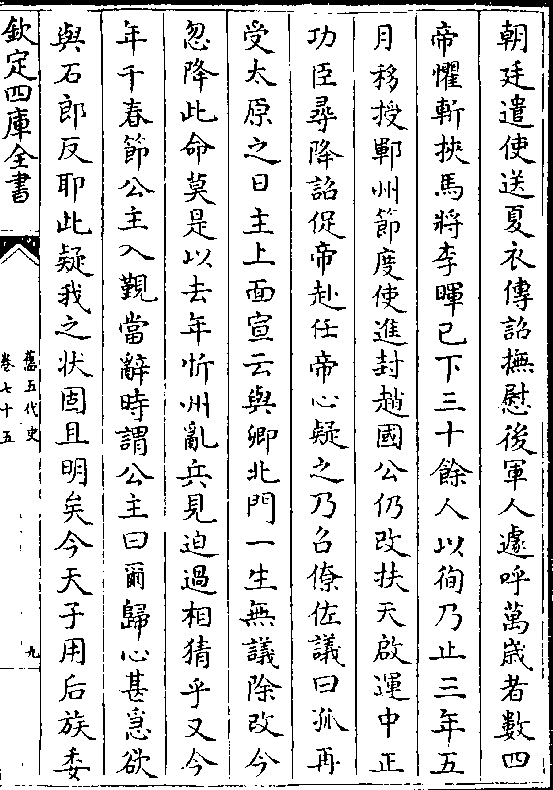 朝廷遣使送夏衣傳詔撫慰後軍人遽呼萬歲者數四
帝懼斬挾馬將李暉已下三十餘人以徇乃止三年五
月移授鄆州節度使進封趙國公仍改扶天啟運中正
功臣尋降詔促帝赴任帝心疑之乃召僚佐議曰孤再
受太原之日主上面宣云與卿北門一生無議除改今
忽降此命莫是以去年忻州亂兵見迫過相猜乎又今
年千春節公主入覲當辭時謂公主曰爾歸心甚急欲
與石郎反耶此疑我之狀固且明矣今天子用后族委
欽定四庫全書
舊五代史
卷七十五
九